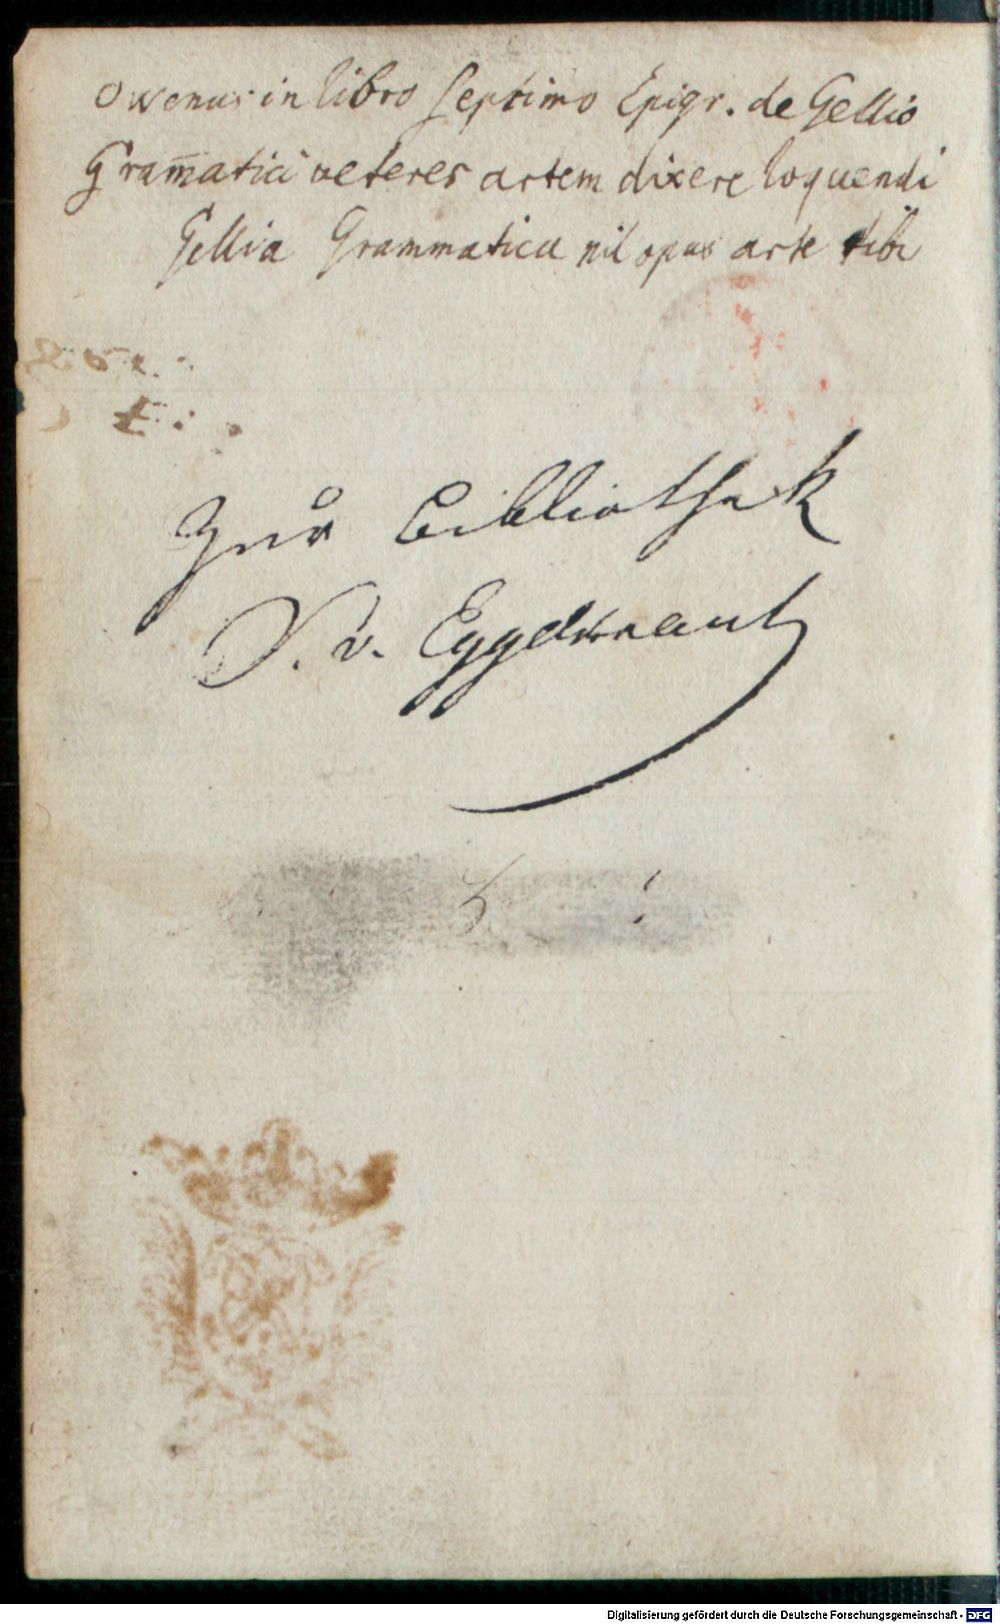 Owenus in libro septimo Epigr. de Gellio
Gram̄atici veteres artem dixere loquendi
Gellia Grammatica nil opus arte tibi
Zur Bibliothek
v. Eggelkraut
Digitalisierung gefördert durch die Deutsche Forschungsgemeinschaft - DFG